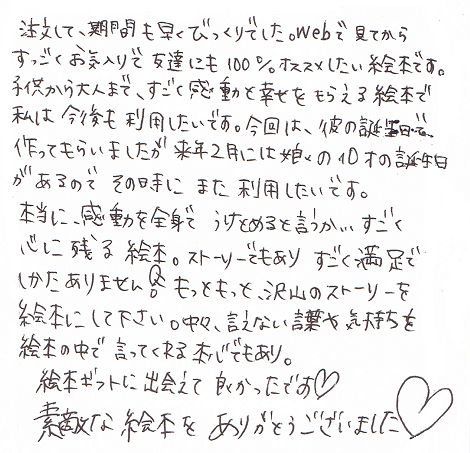 注文して、期間も早くびっくりでした。Webで見てから
すっごくお気入りで友達にも100%オススメしたい絵本です。
子供から大人まで、すごく感動と幸せをもらえる絵本で
私は今後も利用したいです。今回は、彼の誕生日で、
作ってもらいましたが来年2月には娘の10才の誕生日
があるのでその時にまた利用したいです。
本当に、感動を全身でうけとめると言うか…すごく
心に残る絵本。ストーリーでもありすごく満足で
しかたありません もっともっと、沢山のストーリーを
絵本にして下さい。中々、言えない言葉や気持ちを
絵本の中で言ってくれる本でもあり。
絵本ギフトに出会えて良かったです♡
素敵な絵本をありがとうございました♡